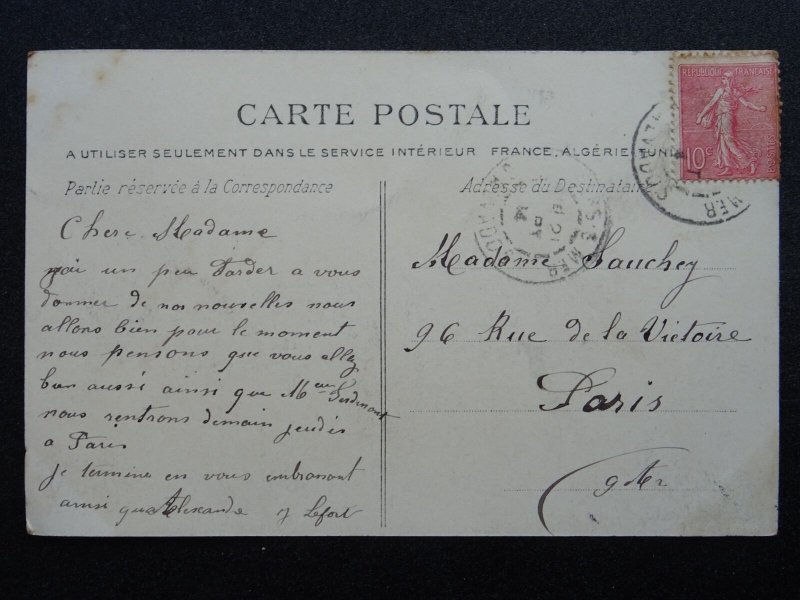 CARTE POSTALE
A UTILISER SEULEMENT DANS LE SERVICE INTÉRIEUR FRANCE, ALGÉRIE, TUN
Partie réservée à la Correspondance
Chere Madame
jai un peu Tarder a vous
donner de nos nouvelles nous
allons bien pour le moment
nous pensons que vous allez
bien aussi ainsi que Mme
nous rentrons demain jeudis
a Paris
je termine en vous embrassant
ainsi que Alexandre J Lefort
Adresse du Destinataire
Madame Sauchey
96 Rue de la Victoire
Paris
9 Ar
RÉPUBLIQUE FRANÇAISE
10c